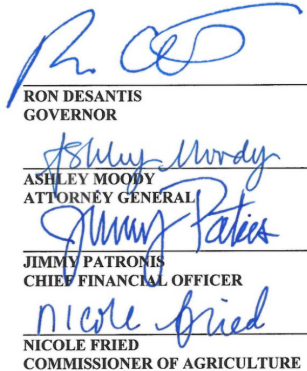 RON DESANTIS
GOVERNOR
Ashley Moody
ASHLEY MOODY
ATTORNEY GENERAL
Jimmy Patronis
JIMMY PATRONIS
CHIEF FINANCIAL OFFICER
nicole fried
NICOLE FRIED
COMMISSIONER OF AGRICULTURE